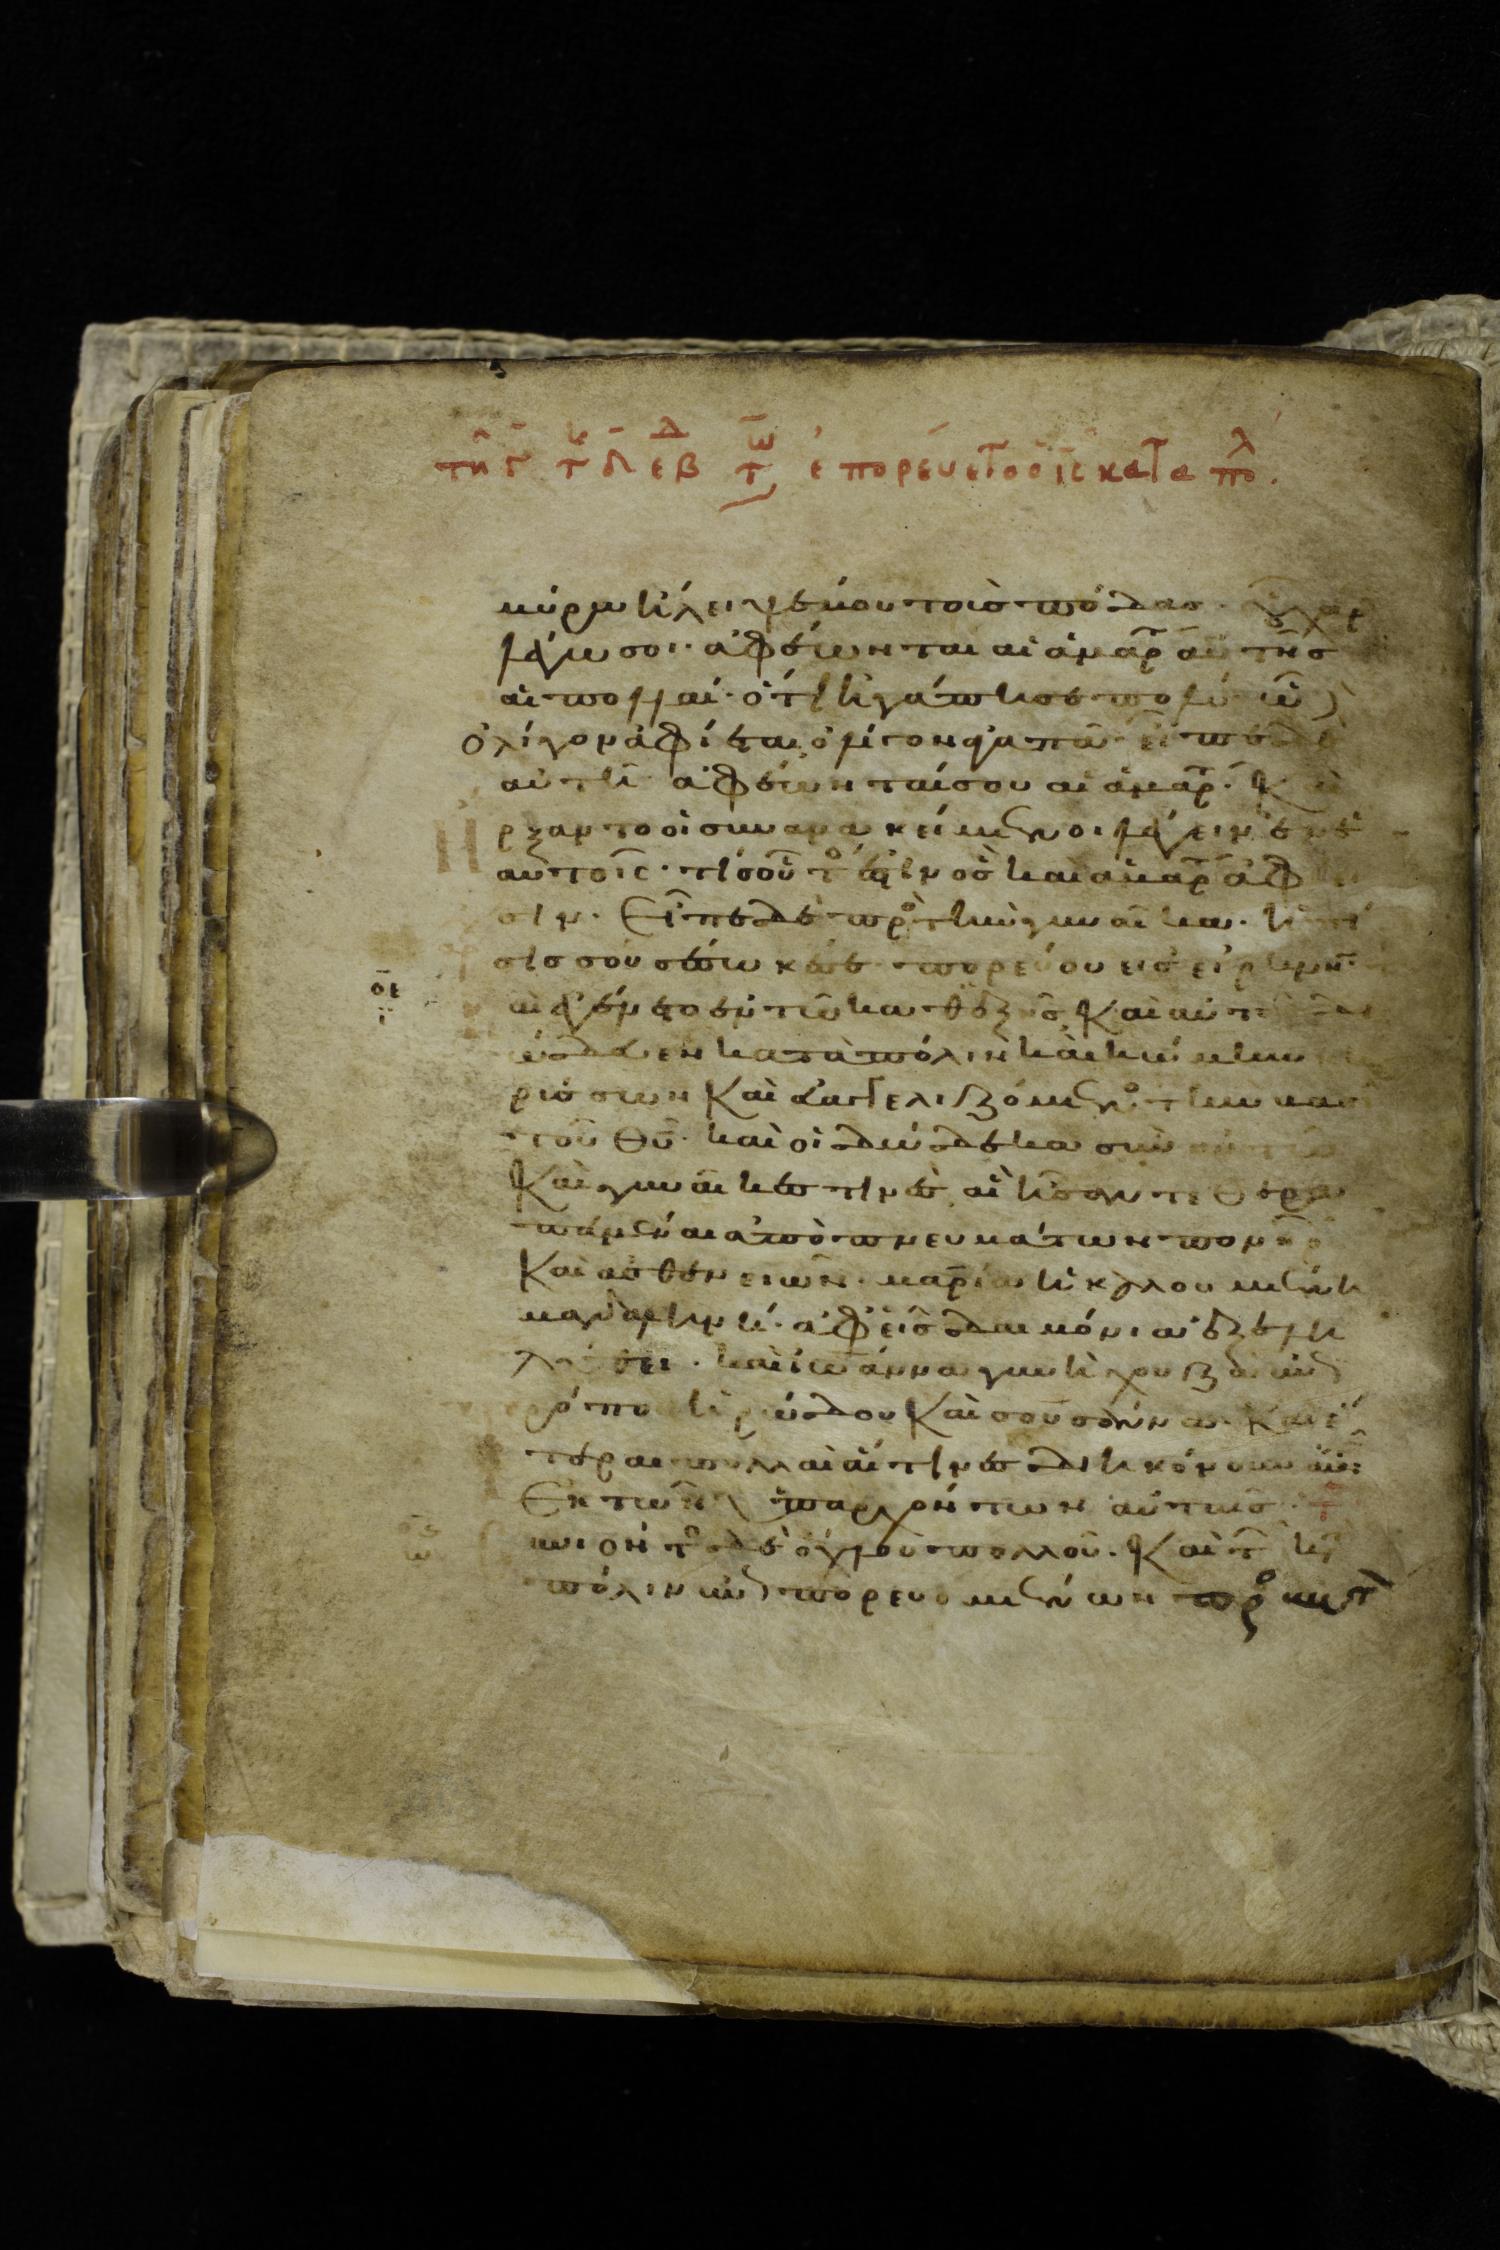 τῆ γ τ δ εβ τω ἐπορεύετο ὁ ις κατα πολ
μύρω ἤλειψέ μου τοὺς πόδας. οὗ χαρ
λέγω σοι. ἀφέωνται αἱ ἁμαρ αὐτῆς
αἱ πολλαί. ὅτι ἠγάπησε πολύ. ὧ
ὀλίγον ἀφίεται, ὀλίγον ἀγαπᾶ. εἶπε δὲ
αὐτῆ ἀφέωνταί σου αἱ ἁμαρ. Καὶ
ἤρξαντο οἱ συνανακείμενοι λέγειν ἐν ἑ
αυτοῖς. τίς οὗτος ἐστιν ὃς καὶ ἁμαρ ἀφ
σιν. Εἶπε δὲ πρὸς τὴν γυναῖκα. ἡ πί
στις σου σέσωκέ σε πορεύου εἰς εἰρήνην
Καὶ ἐγένετο ἐν τῶ καθεξῆς Καὶ αὐτὸς
ώδευεν κατὰ πόλιν καὶ κώμην κη
ρύσσων Καὶ εὐαγγελιζόμενος τὴν βασι
τοῦ θυ. καὶ οἱ δώδεκα σὺν αὐτῶ
Καὶ γυναῖκές τινες αἳ ἦσαν τεθερα
πευμέναι ἀπὸ πνευμάτων πονηρ
Καὶ ἀσθενειῶν. μαρία ἡ καλουμένη
μαγδαληνή. ἀφ' ἧς δαιμόνια ἑπτὰ ἐξελη
λύθει. καὶ ἰωάννα γυνὴ χουζᾶ ἐπι
τρόπου ἡρώδου Καὶ σουσάννα. Καὶ ἕ
τεραι πολλαὶ αἵτινες διηκόνουν αὐτ
Εκ τῶν ὑπαρχόντων αὐταῖς
συνιόντος δὲ ὄχλου πολλοῦ. Καὶ τ κατὰ
πόλιν ἐπιπορευομένων πρὸς αὐτὸν